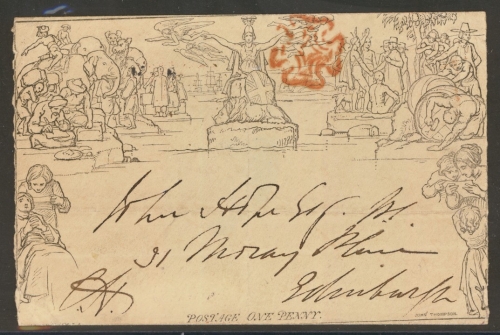 John Hope Esq. Jr.
31 Moray Place
Edinburgh
POSTAGE ONE PENNY.
JOHN THOMPSON